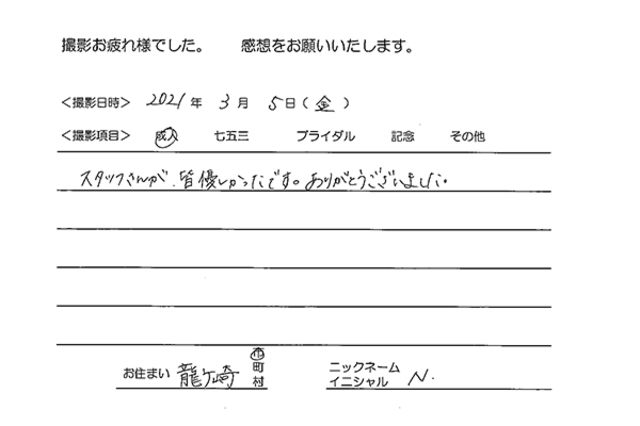 撮影お疲れ様でした。　感想をお願いいたします。
<撮影日時> 2021年 3月 5日(金)
<撮影項目> 成人 七五三 ブライダル 記念 その他
スタッフさんが、皆優しかったです。ありがとうございました。
お住まい 龍ケ崎 市町村 ニックネーム イニシャル N.